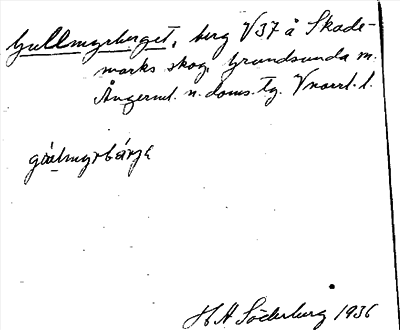 Gullmyrberget, berg V37 å Skade-
marks skog, Grundsunda sn.
Ångerml. n. doms. tg. Vnorrl. l.
gúlmyrbǽrjɛ
H A Söderberg 1936